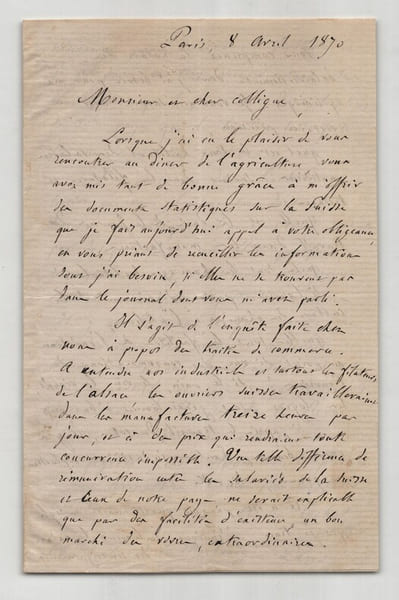 Paris, 8 Avril 1870
Monsieur et cher collègue,
Lorsque j'ai eu le plaisir de vous
rencontrer au Diner de l'agriculture vous
avez mis tant de bonne grâce à m'offrir
des documents statistiques sur la Suisse
que je fais aujourd'hui appel à votre obligeance
en vous priant de recueillir les informations
dont j'ai besoin, si elles ne se trouvent pas
dans le journal dont vous m'avez parlé.
Il s'agit de l'enquête faite chez
nous à propos des traités de commerce.
A entendre nos industriels et surtout les filateurs
de l'alsace, les ouvriers suisses travailleraient
dans les manufactures treize heures par
jour, et à des prix qui rendraient toute
concurrence impossible. Une telle différence de
rémunération entre les salariés de la Suisse
et ceux de notre pays ne serait explicable
que par des facilités d'existence, un bon
marché des vivres, extraordinaires.